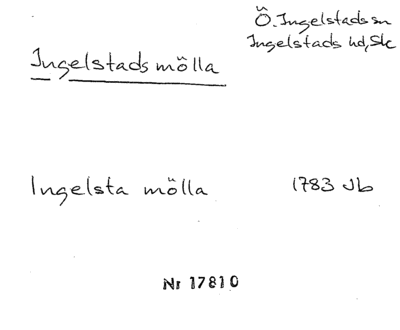 Ö. Ingelstads sn
Ingelstads hd, Sk
Ingelstads mölla
Ingelsta mölla 1783 Jb
Nr 17810